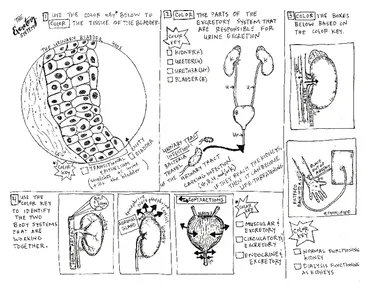 THE
Excretory
SYSTEM
1 USE THE COLOR KEY BELOW TO
COLOR THE TISSUE OF THE BLADDER.
THE URINARY BLADDER
COLOR
KEY
TRANSITIONAL
EPITHELIUM
CAVITY
BLADDER
2 COLOR THE PARTS OF THE
EXCRETORY SYSTEM THAT
ARE RESPONSIBLE FOR
URINE EXCRETION
COLOR
KEY
KIDNEY(K)
URETER(U)
URETHRA(Ur)
BLADDER(B)
URINARY TRACT
INFECTION
BACTERIA
TRAVEL
URINARY TRACT
CAUSING INFECTION
THE KIDNEYS,
THEN IT CAN BECOME
LIFE-THREATENING
3 COLOR THE BOXES
BELOW BASED ON
THE COLOR KEY.
COLOR
KEY
NORMAL FUNCTIONING
KIDNEY
DIALYSIS FUNCTIONING
AS KIDNEYS
4 USE THE
COLOR KEY
TO IDENTIFY
THE TWO
BODY SYSTEMS
THAT ARE
WORKING
TOGETHER.
GLAND
CONTRACTIONS
COLOR
KEY
MUSCULAR &
EXCRETORY
CIRCULATORY &
EXCRETORY
ENDOCRINE &
EXCRETORY